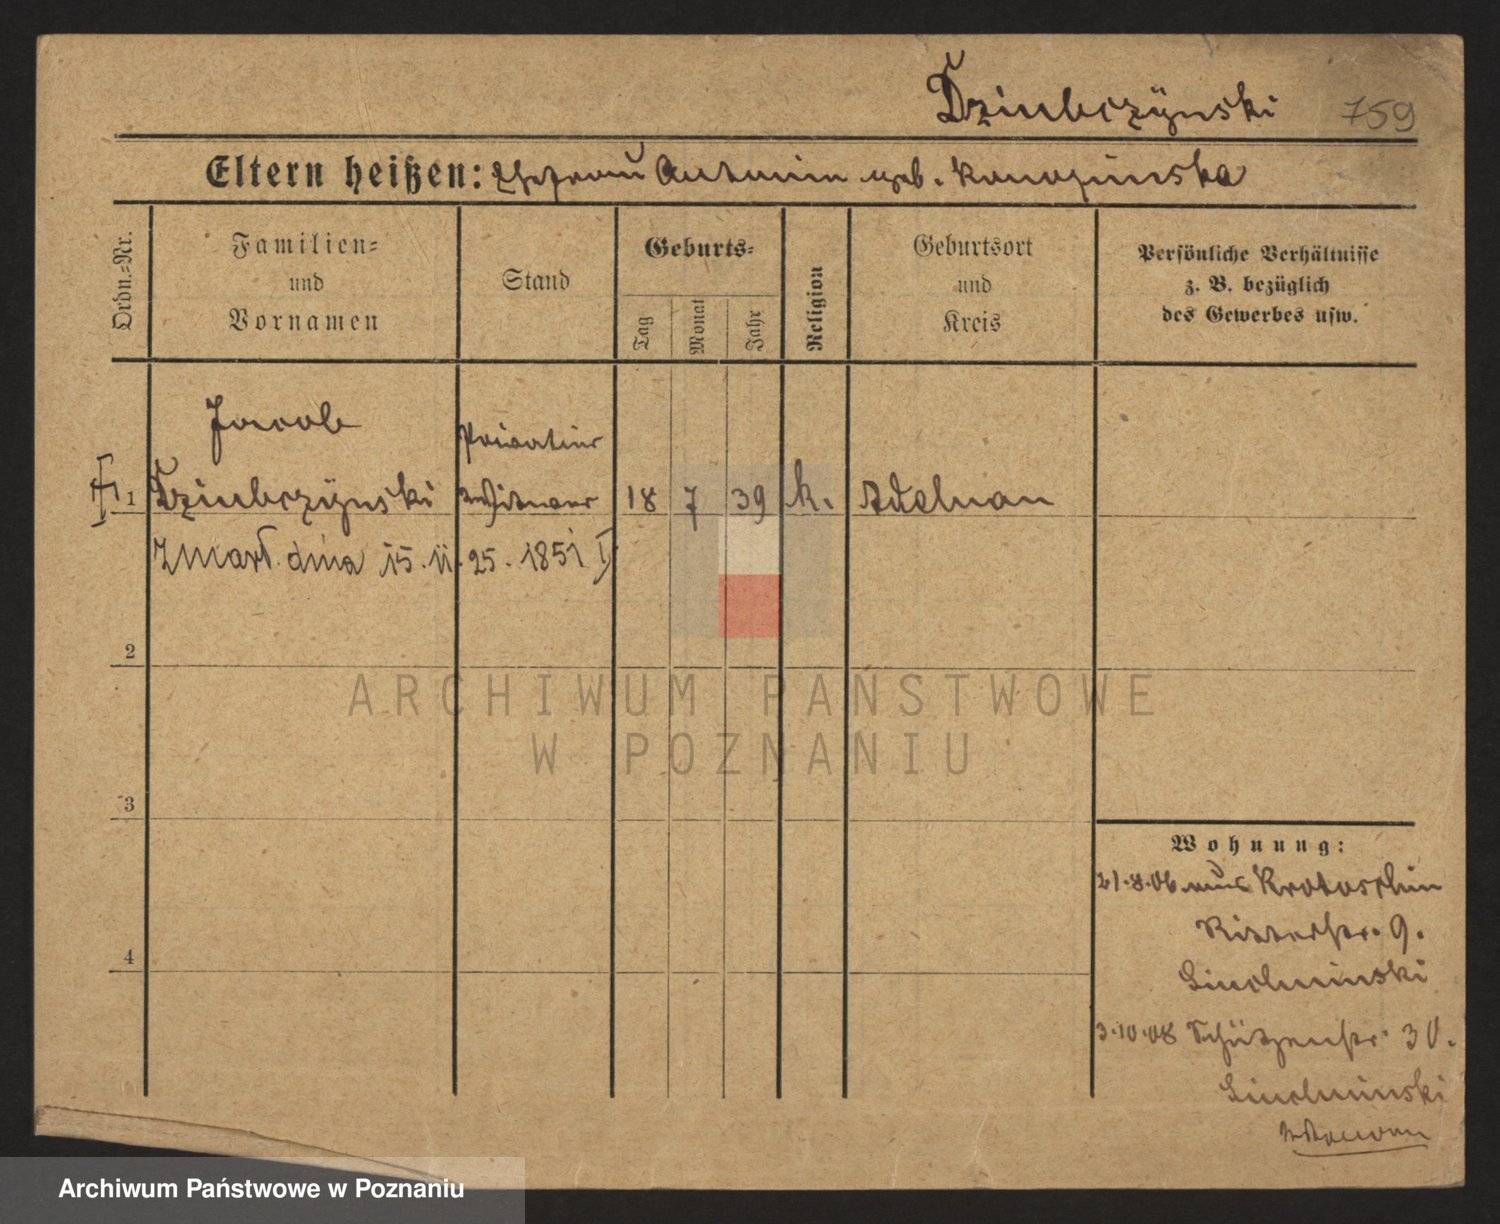 Dziubczyński 759
Eltern heißen: Ehefrau Antonin geb.
Ordn.=Nr.
Familien=
und
Vornamen
Stand
Geburts=
Tag
Monat
Jahr
Religion
Geburtsort
und
Kreis
Persönliche Verhältnisse
z. B. bezüglich
des Gewerbes usw.
Jacob
Privatier
1 Dziubczyński Witwer 18 7 39 k. Adelnau
Zmarł dnia 15.11.25. 1851
2
3
4
Wohnung:
21.8.06 aus Krotoschin
Ritterstr. 9.
3.10.08 Schützenstr. 30.
ARCHIWUM PAŃSTWOWE
W POZNANIU
Archiwum Państwowe w Poznaniu